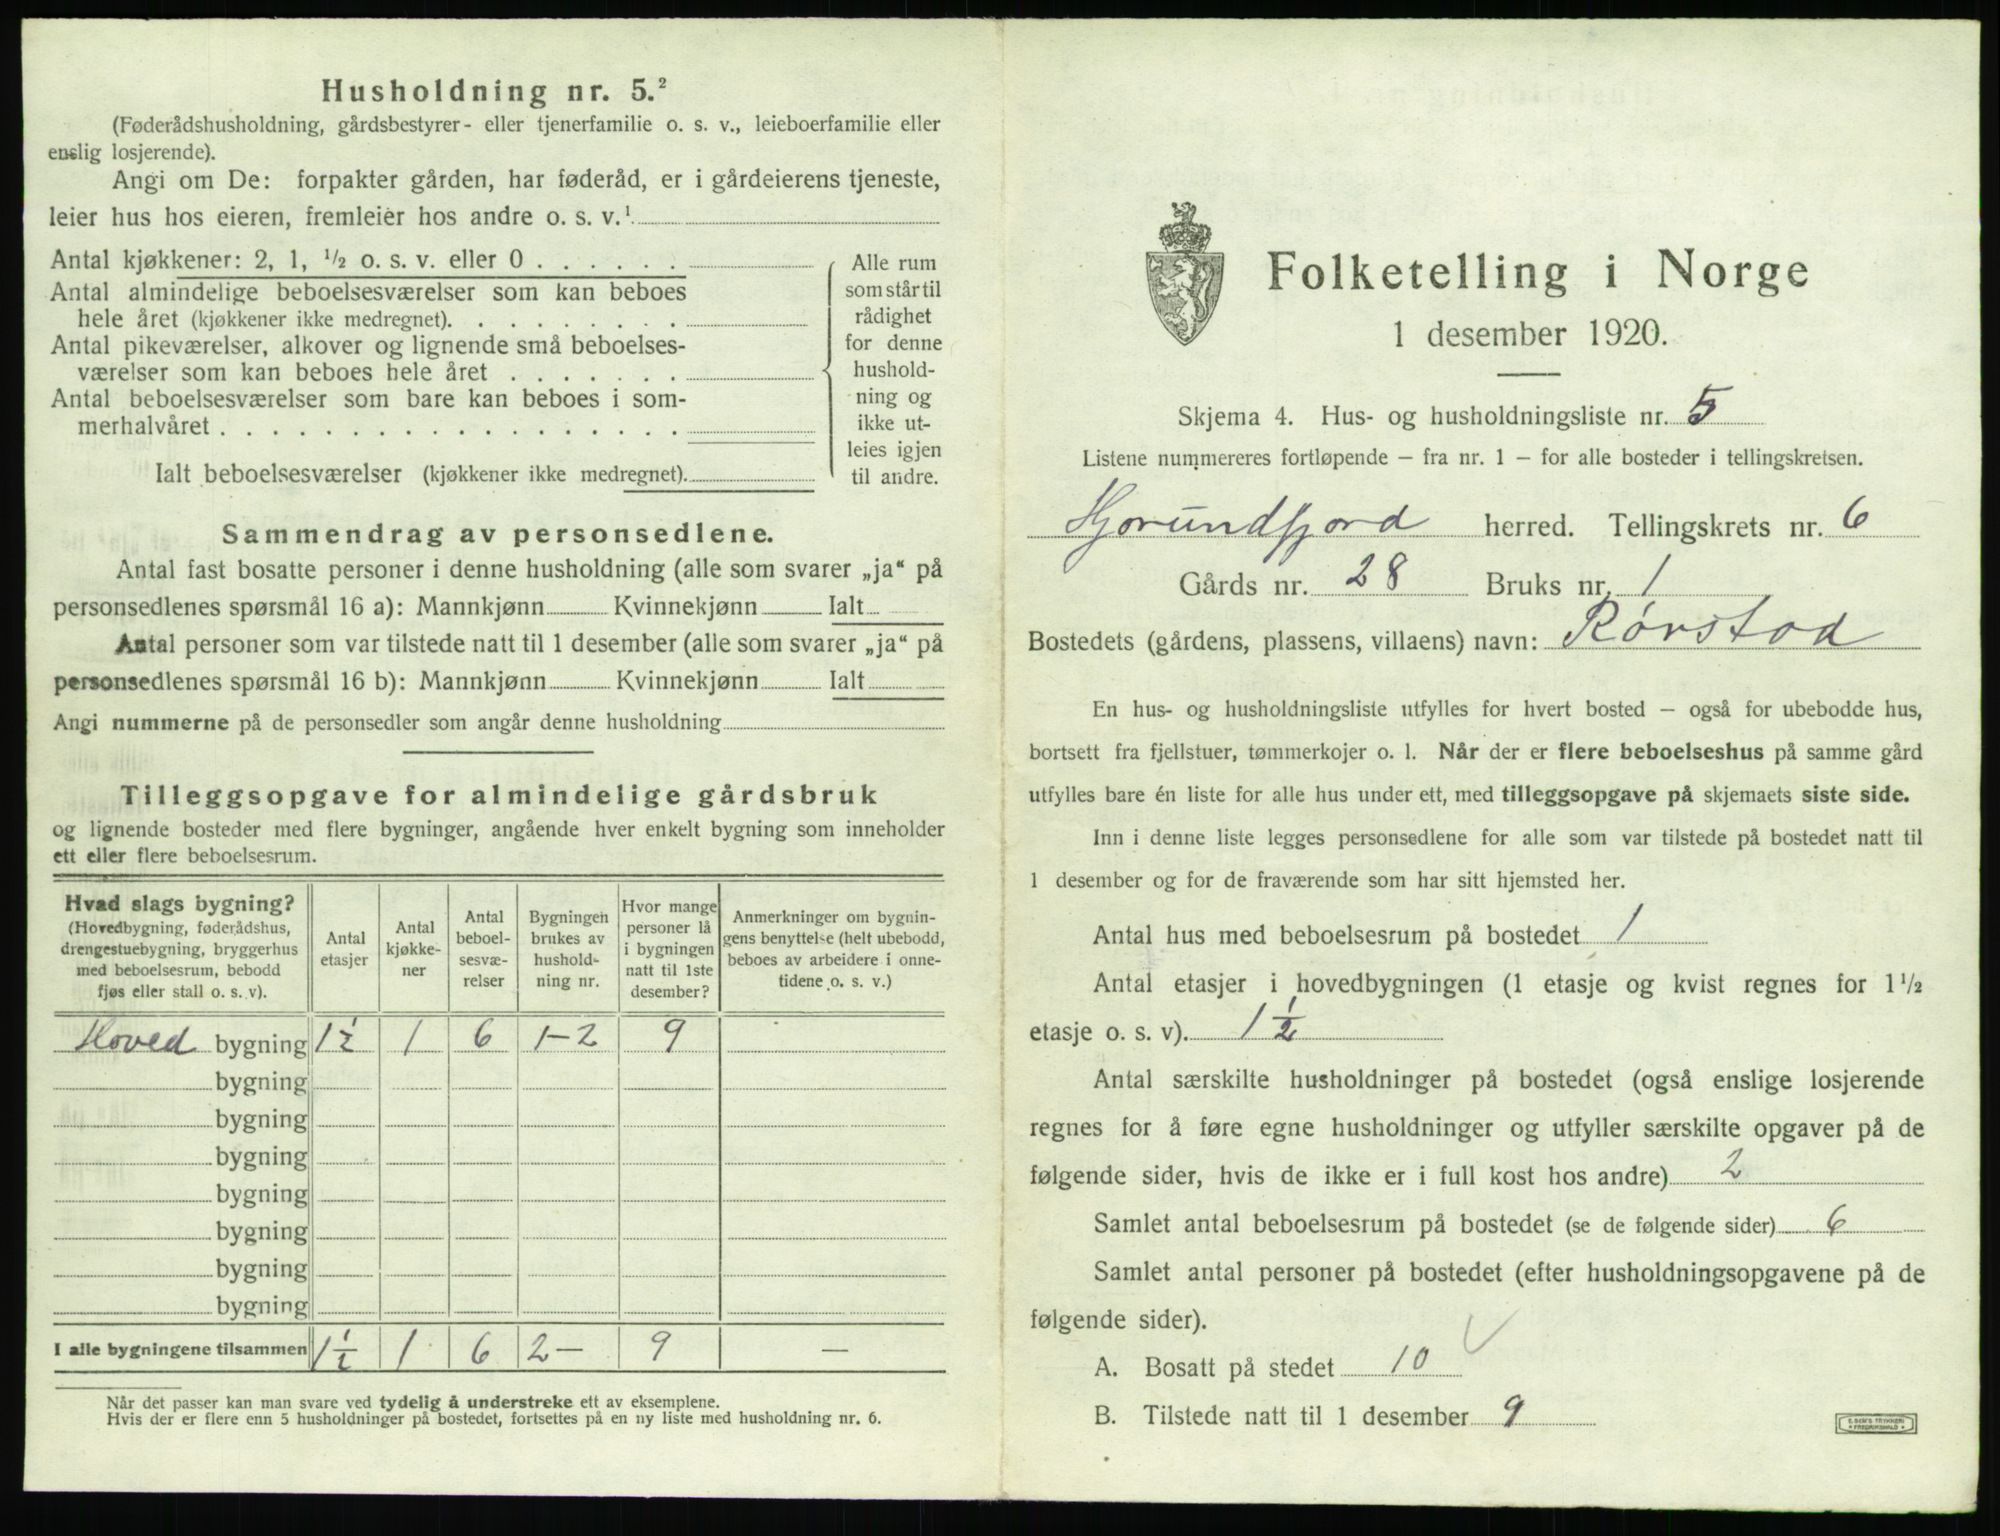 Husholdning nr. 5.²
(Føderådshusholdning, gårdsbestyrer- eller tjenerfamilie o. s. v., leieboerfamilie eller
enslig losjerende).
Angi om De: forpakter gården, har føderåd, er i gårdeierens tjeneste,
leier hus hos eieren, fremleier hos andre o. s. v.¹
Antal kjøkkener: 2, 1, ½ o. s. v. eller 0
Antal almindelige beboelsesværelser som kan beboes
hele året (kjøkkener ikke medregnet).
Antal pikeværelser, alkover og lignende små beboelses-
værelser som kan beboes hele året
Antal beboelsesværelser som bare kan beboes i som-
merhalvåret
Ialt beboelsesværelser (kjøkkener ikke medregnet).
Alle rum
som står til
rådighet
for denne
hushold-
ning og
ikke ut-
leies igjen
til andre.
Sammendrag av personsedlene.
Antal fast bosatte personer i denne husholdning (alle som svarer „ja“ på
personsedlenes spørsmål 16 a): Mannkjønn Kvinnekjønn Ialt
Antal personer som var tilstede natt til 1 desember (alle som svarer „ja“ på
personsedlenes spørsmål 16 b): Mannkjønn Kvinnekjønn Ialt
Angi nummerne på de personsedler som angår denne husholdning
Tilleggsopgave for almindelige gårdsbruk
og lignende bosteder med flere bygninger, angående hver enkelt bygning som inneholder
ett eller flere beboelsesrum.
Hvad slags bygning?
(Hovedbygning, føderådshus,
drengestuebygning, bryggerhus
med beboelsesrum, bebodd
fjøs eller stall o. s. v).
Antal
etasjer
Antal
kjøkke-
ner
Antal
beboel-
sesvæ-
relser
Bygningen
brukes av
hushold-
ning nr.
Hvor mange
personer lå
i bygningen
natt til 1ste
desember?
Anmerkninger om bygnin-
gens benyttelse (helt ubebodd,
beboes av arbeidere i onne-
tidene o. s. v.)
Hoved bygning 1½ 1 6 1-2 9
bygning
bygning
bygning
bygning
bygning
bygning
bygning
I alle bygningene tilsammen 1½ 1 6 2— 9 —
Når det passer kan man svare ved tydelig å understreke ett av eksemplene.
Hvis der er flere enn 5 husholdninger på bostedet, fortsettes på en ny liste med husholdning nr. 6.
Folketelling i Norge
1 desember 1920.
Skjema 4. Hus- og husholdningsliste nr. 5
Listene nummereres fortløpende – fra nr. 1 – for alle bosteder i tellingskretsen.
Hjorundfjord herred. Tellingskrets nr. 6
Gårds nr. 28 Bruks nr. 1
Bostedets (gårdens, plassens, villaens) navn: Rørstad
En hus- og husholdningsliste utfylles for hvert bosted – også for ubebodde hus,
bortsett fra fjellstuer, tømmerkojer o. l. Når der er flere beboelseshus på samme gård
utfylles bare én liste for alle hus under ett, med tilleggsopgave på skjemaets siste side.
Inn i denne liste legges personsedlene for alle som var tilstede på bostedet natt til
1 desember og for de fraværende som har sitt hjemsted her.
Antal hus med beboelsesrum på bostedet 1
Antal etasjer i hovedbygningen (1 etasje og kvist regnes for 1½
etasje o. s. v). 1½
Antal særskilte husholdninger på bostedet (også enslige losjerende
regnes for å føre egne husholdninger og utfyller særskilte opgaver på de
følgende sider, hvis de ikke er i full kost hos andre) 2
Samlet antal beboelsesrum på bostedet (se de følgende sider) 6
Samlet antal personer på bostedet (efter husholdningsopgavene på de
følgende sider).
A. Bosatt på stedet 10
B. Tilstede natt til 1 desember 9